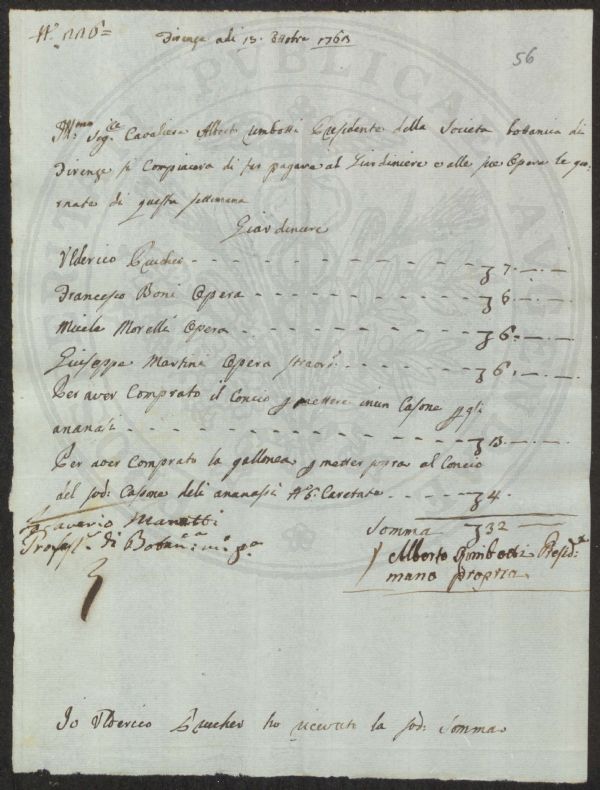 56
Firenze adi 13. Ottobre 1763
Ill:mo Sig:re Cavaliere Alberto Rimbotti Presidente della Societa botanica di
Firenze si Compiacera di far pagare al Giardiniere e alle sue Opera le gior
nate di questa settimana
Giardiniere
Ulderico Prucher - - - 7. —.—
Francesco Boni Opera - - - 6 —.—
Miele Morelli Opera - - - 6 —.—
Giuseppe Martini Opera straord: - - - 6. —.—
Per aver Comprato il Concio p mettere in un Casone p gli
ananassi - - - 13 —.—
Per aver Comprato la gallonea p metter sopra al Concio
del sod: Casone deli ananassi N° 6: Caretate - - - 4.
Saverio Manetti
Profess:re di Botan:ca m:o p:a
Somma 32 —.—
Alberto Rimbotti Presid:e
mano propria
Io Ulderico Prucher ho ricevuto la sod: Somma